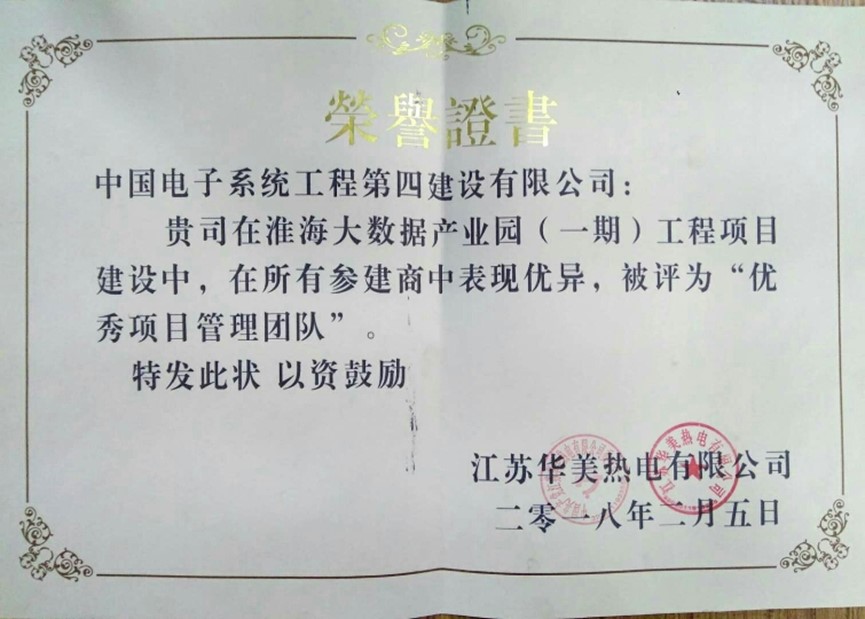 榮譽證書
中国电子系统工程第四建设有限公司：
贵司在淮海大数据产业园（一期）工程项目
建设中，在所有参建商中表现优异，被评为“优
秀项目管理团队”。
特发此状 以资鼓励
江苏华美热电有限公司
二零一八年二月五日
江苏华美热电有限公司